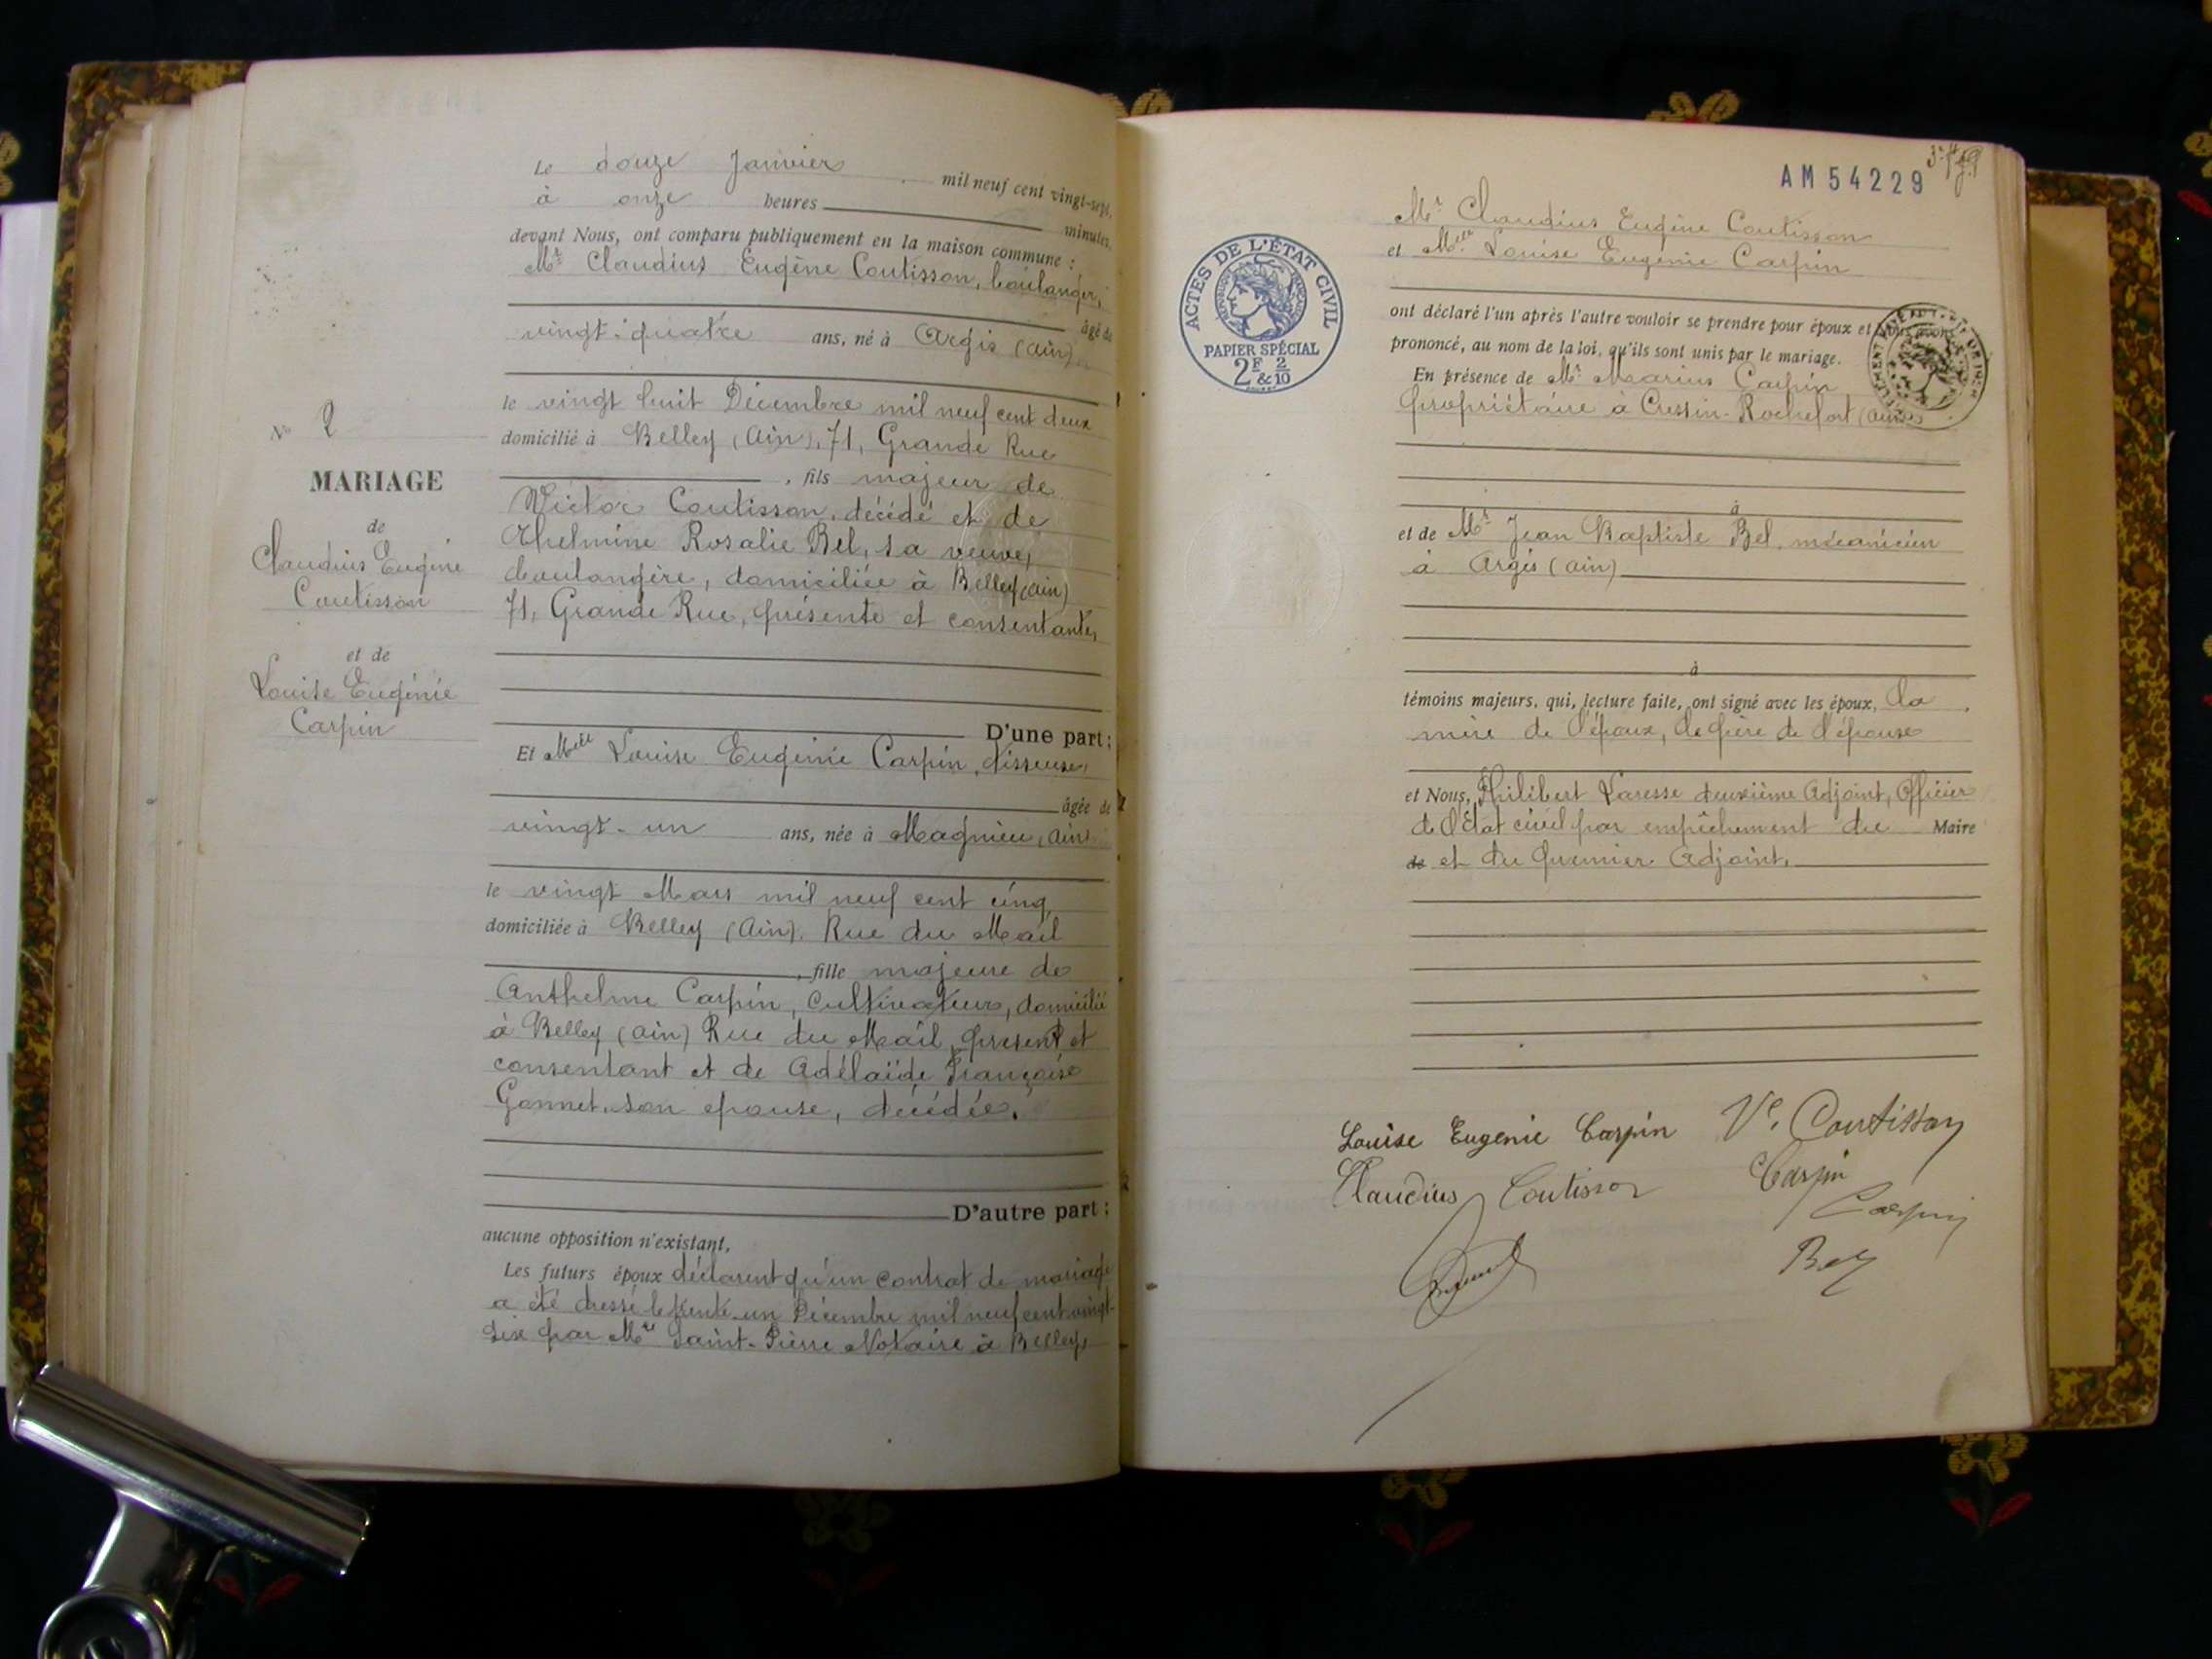 Le douze Janvier mil neuf cent vingt-sept,
à onze heures minutes,
devant Nous, ont comparu publiquement en la maison commune :
Mr Claudius Eugène Coutisson, boulanger,
âgé de
vingt-quatre ans, né à Argis (Ain)
le vingt huit Décembre mil neuf cent deux
domicilié à Belley (Ain), 71, Grande Rue
, fils majeur de
Victor Coutisson, décédé et de
Thelmine Rosalie Bel, sa veuve,
boulangère, domiciliée à Belley (Ain)
71, Grande Rue, présente et consentante,
D'une part ;
Et Melle Louise Eugénie Carpin, tisseuse,
âgée de
vingt-un ans, née à Magnieu, (Ain)
le vingt Mars mil neuf cent cinq,
domiciliée à Belley (Ain). Rue du Mail
, fille majeure de
Anthelme Carpin, cultivateur, domicilié
à Belley (Ain) Rue du Mail, présent et
consentant et de Adélaïde Françoise
Gonnet, son épouse, décédée.
D'autre part ;
aucune opposition n'existant,
Les futurs époux déclarent qu'un contrat de mariage
a été dressé le trente-un Décembre mil neuf cent vingt-
six par Me Saint-Pierre Notaire à Belley,
No 2
MARIAGE
de
Claudius Eugène
Coutisson
et de
Louise Eugénie
Carpin
AM 54229
Mr Claudius Eugène Coutisson
et Melle Louise Eugénie Carpin
ACTES DE L'ÉTAT CIVIL
PAPIER SPÉCIAL
2F & 2/10
ont déclaré l'un après l'autre vouloir se prendre pour époux et Nous avons
prononcé, au nom de la loi, qu'ils sont unis par le mariage.
En présence de Mr Marius Carpin
propriétaire à Cressin-Rochefort (Ain)
à
et de Mr Jean Baptiste Bel, mécanicien
à Argis (Ain)
à
témoins majeurs, qui, lecture faite, ont signé avec les époux, la
mère de l'époux, le père de l'épouse
et Nous, Philibert Laresse deuxième Adjoint, Officier
de l'Etat civil par empêchement du Maire
de et du premier Adjoint,
Louise Eugenie Carpin Ve Coutisson
Claudius Coutisson Carpin
Carpin
Bel